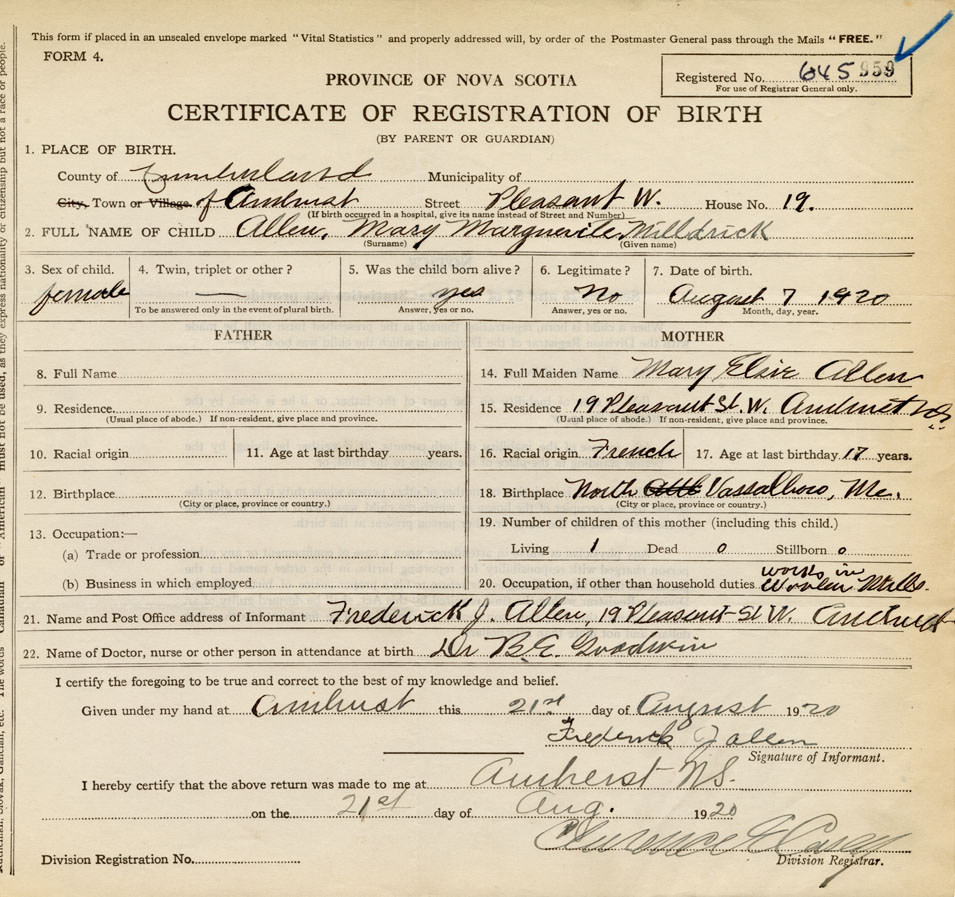 This form if placed in an unsealed envelope marked "Vital Statistics" and properly addressed will, by order of the Postmaster General pass through the Mails "FREE."
FORM 4.
Registered No. 645 959
For use of Registrar General only.
PROVINCE OF NOVA SCOTIA
CERTIFICATE OF REGISTRATION OF BIRTH
(BY PARENT OR GUARDIAN)
1. PLACE OF BIRTH.
County of Cumberland Municipality of
City, Town or Village. of Amherst Street Pleasant W. House No. 19.
(If birth occurred in a hospital, give its name instead of Street and Number)
2. FULL NAME OF CHILD Allen, Mary Marguerite Milldrick
(Surname) (Given name)
3. Sex of child. 4. Twin, triplet or other? 5. Was the child born alive? 6. Legitimate? 7. Date of birth.
female — yes No August 7 1920
To be answered only in the event of plural birth. Answer, yes or no. Answer, yes or no. Month, day, year.
FATHER
8. Full Name
9. Residence.
(Usual place of abode.) If non-resident, give place and province.
10. Racial origin 11. Age at last birthday years.
12. Birthplace
(City or place, province or country.)
13. Occupation:—
(a) Trade or profession
(b) Business in which employed
MOTHER
14. Full Maiden Name Mary Elsie Allen
15. Residence 19 Pleasant St. W. Amherst N.S.
(Usual place of abode.) If non-resident, give place and province.
16. Racial origin French 17. Age at last birthday 17 years.
18. Birthplace North Vassalboro, Me.
(City or place, province or country.)
19. Number of children of this mother (including this child.)
Living 1 Dead 0 Stillborn 0
20. Occupation, if other than household duties works in Woolen Mills.
21. Name and Post Office address of Informant Frederick J. Allen, 19 Pleasant St W. Amherst
22. Name of Doctor, nurse or other person in attendance at birth Dr B.E. Goodwin
I certify the foregoing to be true and correct to the best of my knowledge and belief.
Given under my hand at Amherst this 21st day of August 1920
Frederick J Allen
Signature of Informant.
I hereby certify that the above return was made to me at Amherst N.S.
on the 21st day of Aug. 1920
Division Registration No.
Division Registrar.